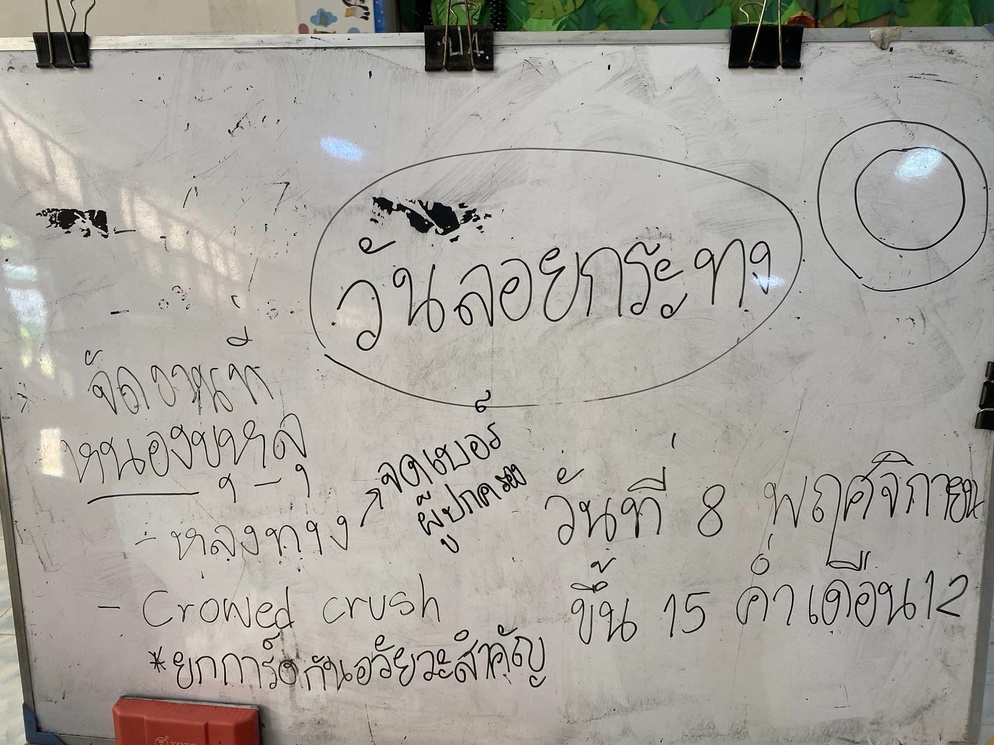 วันลอยกระทง
จัดงานที่
หนองขุหลุ
- หลงทาง
↗ จดเบอร์
ผู้ปกครอง
- Crowed crush
*ยกการ์ดกันอวัยวะสำคัญ
วันที่ 8 พฤศจิกายน
ขึ้น 15 ค่ำ เดือน 12